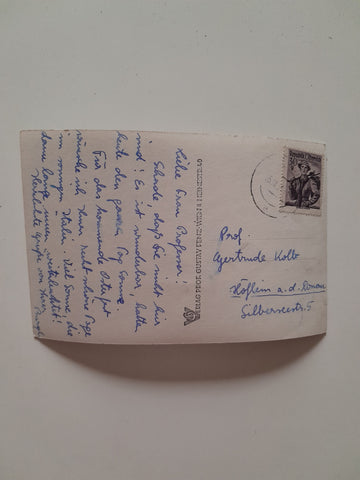 Liebe Frau Professor!
Schade, daß Sie nicht hier
sind! Es ist wunderbar, hatten
heute den ganzen Tag Sonne.
Für das kommende Osterfest
wünsche ich Ihnen recht schöne Tage
im sonnigen Italien. Viel Sonne, die
dann lange innen weiterleuchtet!
Herzlichste Grüße von Ihrer
VERLAG PROF. GUSTAV
Prof.
Gertrude Kolb
Höflein a. d. Donau
Silberseestr. 5